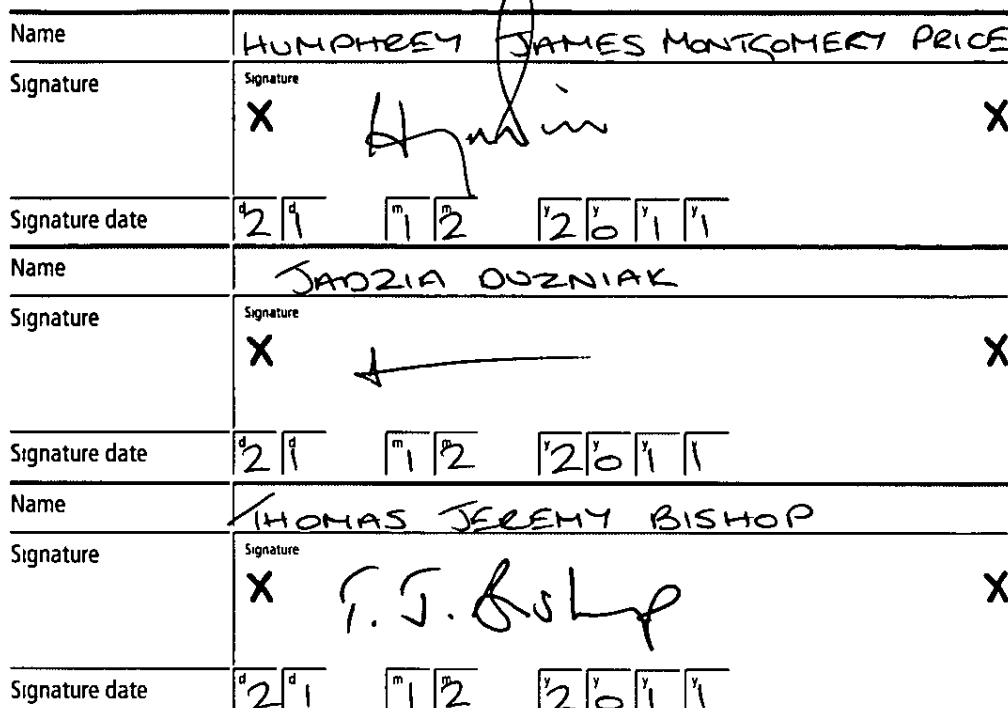 Name HUMPHREY JAMES MONTGOMERY PRICE
Signature Signature
X X
Signature date d2 d1 m1 m2 y2 y0 y1 y1
Name JADZIA DUZNIAK
Signature Signature
X X
Signature date d2 d1 m1 m2 y2 y0 y1 y1
Name THOMAS JEREMY BISHOP
Signature Signature
X T. J. Bishop X
Signature date d2 d1 m1 m2 y2 y0 y1 y1